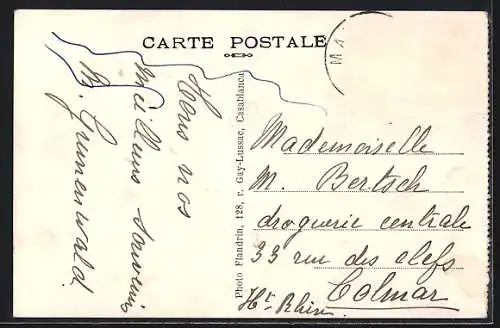 CARTE POSTALE
MA
Tous nos
meilleurs souvenirs
Grunenwald
Photo Flandrin, 128, r. Gay-Lussac, Casablanca
Mademoiselle
M. Bertsch
droguerie centrale
33 rue des clefs
Colmar
Ht Rhin